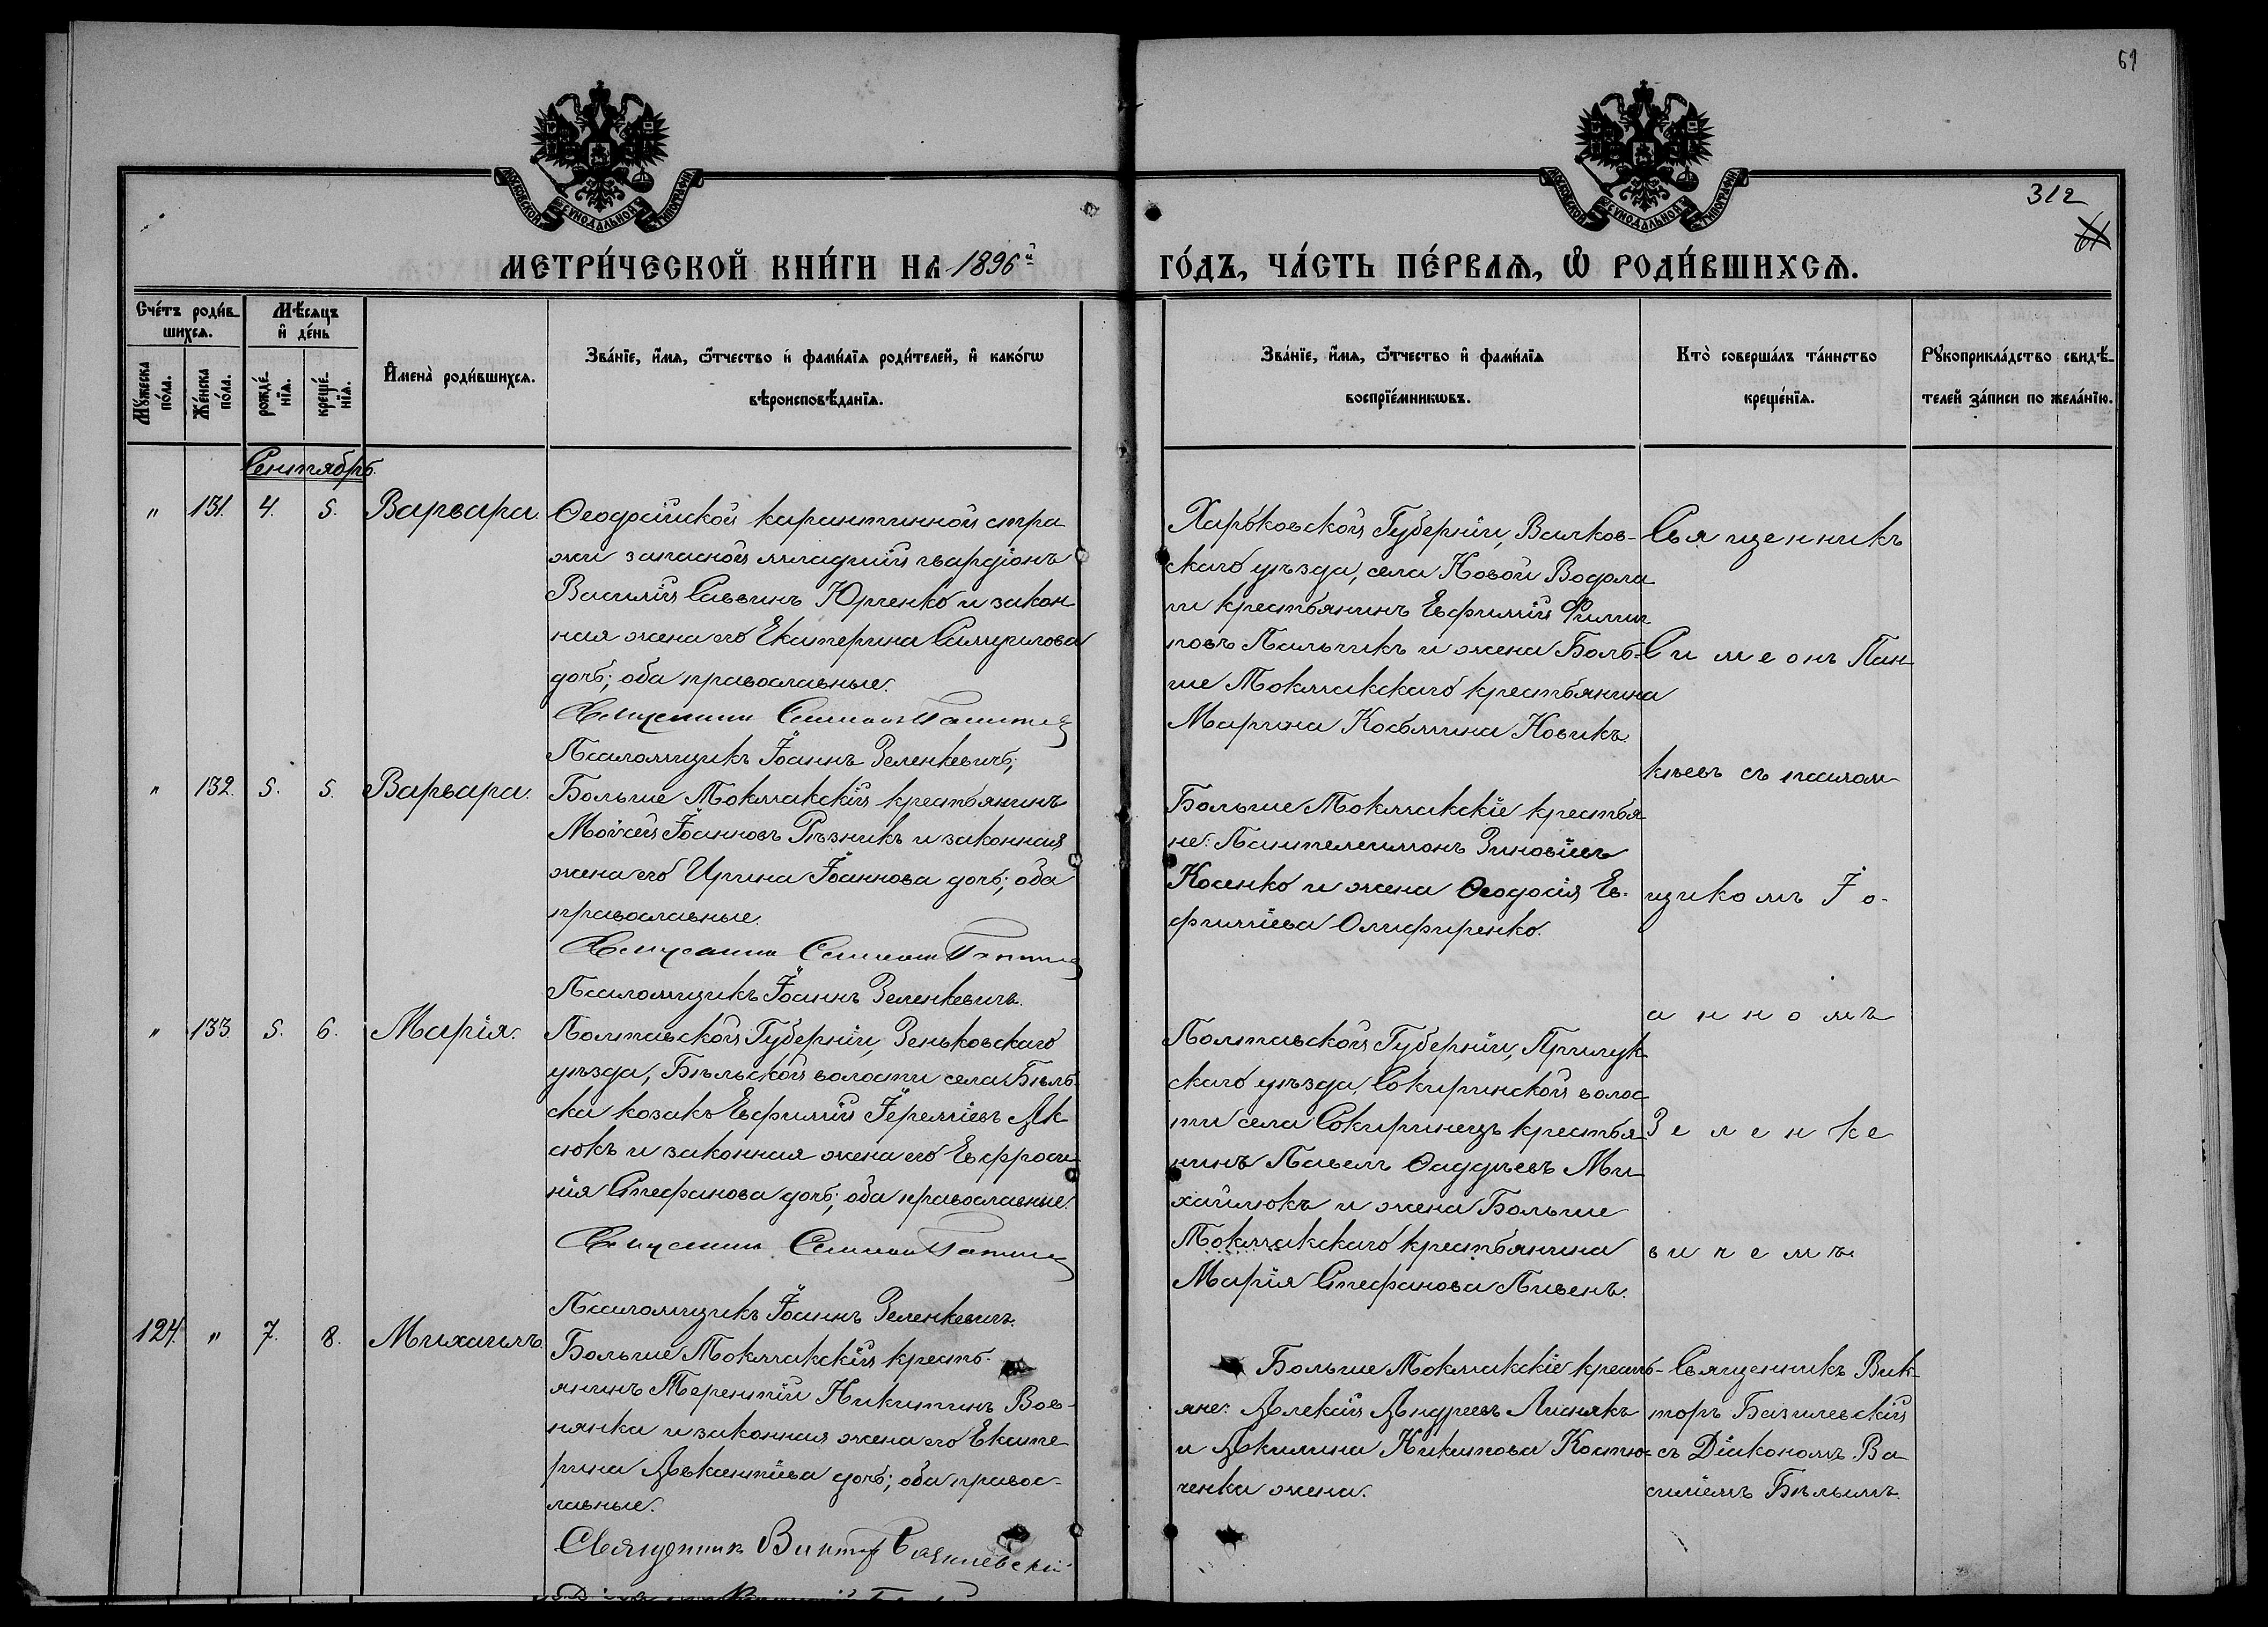 61
312
61
МОСКОВСКОЙ СѴНОДАЛЬНОЙ ТИПОГРАФІИ
МОСКОВСКОЙ СѴНОДАЛЬНОЙ ТИПОГРАФІИ
МЕТРИ́ЧЕСКОЙ КНИ́ГИ НА 1896й
ГО́ДЪ, ЧА́СТЬ ПЕ́РВАѦ, Ѽ РОДИ́ВШИХСѦ.
Сче́тъ роди́в-
шихсѧ.
Мꙋ́жеска
по́ла.
Же́нска
по́ла.
Мѣ́сѧцъ
и҆ де́нь
рожде́-
нїѧ.
креще́-
нїѧ.
И҆мена̀ роди́вшихсѧ.
Зва́нїе, и҆́мѧ, ѻ҆́тчество и҆ фами́лїѧ роди́телей, и҆ како́гѡ
вѣроисповѣ́данїѧ.
Зва́нїе, и҆́мѧ, ѻ҆́тчество и҆ фами́лїѧ
воспрїе́мникѡвъ.
Кто̀ соверша́лъ та́инство
креще́нїѧ.
Рꙋкоприкла́дство свидѣ́-
телей за́писи по жела́нїю.
Сентябрь.
" 131. 4. 5. Варвара.
Ѳеодосійской карантинной стра
жи запасной младшій гвардіонъ
Василій Саввинъ Юрченко и закон
ная жена его Екатерина Самуилова
дочь; оба православные.
Священникъ Симеонъ
Псаломщикъ Іоаннъ Зеленкевичъ;
Харьковской Губерніи, Валков-
скаго уѣзда, села Новой Водола
ги крестьянинъ Евфимій Филип
повъ Пальчикъ и жена Боль-
ше Токмакскаго крестьянина
Марина Косьмина Новикъ.
Священникъ
Симеонъ Пан
кѣевъ съ псалом
щикомъ Іо-
анномъ
Зеленке
вичемъ
" 132. 5. 5. Варвара.
Больше Токмакскій крестьянинъ
Моѵсей Іоанновъ Рѣзникъ и законная
жена его Ирина Іоаннова дочь; оба
православные.
Священникъ Симеонъ
Псаломщикъ Іоаннъ Зеленкевичъ.
Больше Токмакскіе крестья
не: Пантелеимонъ Зиновіевъ
Косенко и жена Ѳеодосія Ев-
фиміева Олифиренко.
" 133. 5. 6. Марія.
Полтавской Губерніи, Зеньковскаго
уѣзда, Бѣльской волости села Бѣль
ска козакъ Евфимій Іереміевъ Ак
сюкъ и законная жена его Евфроси
нія Стефанова дочь; оба православные.
Священникъ Симеонъ
Псаломщикъ Іоаннъ Зеленкевичъ.
Полтавской Губерніи, Прилук
скаго уѣзда, Сокиринской волос
ти села Сокиринецъ крестья
нинъ Павелъ Ѳаддѣевъ Ми
хайлюкъ и жена Больше
Токмакскаго крестьянина
Марія Стефанова Пивень.
124. " 7. 8. Михаилъ.
Больше Токмакскій кресть-
янинъ Терентій Никитинъ Вов-
нянка и законная жена его Екате
рина Авксентіева дочь; оба правос-
лавные.
Священникъ Викторъ Базилевскій
Больше Токмакскіе кресть-
яне: Алексій Андреевъ Лиснякъ
и Акилина Никитова Костю-
ченка жена.
Священникъ Вик-
торъ Базилевскій
съ Діакономъ Ва
силіемъ Бѣлымъ.